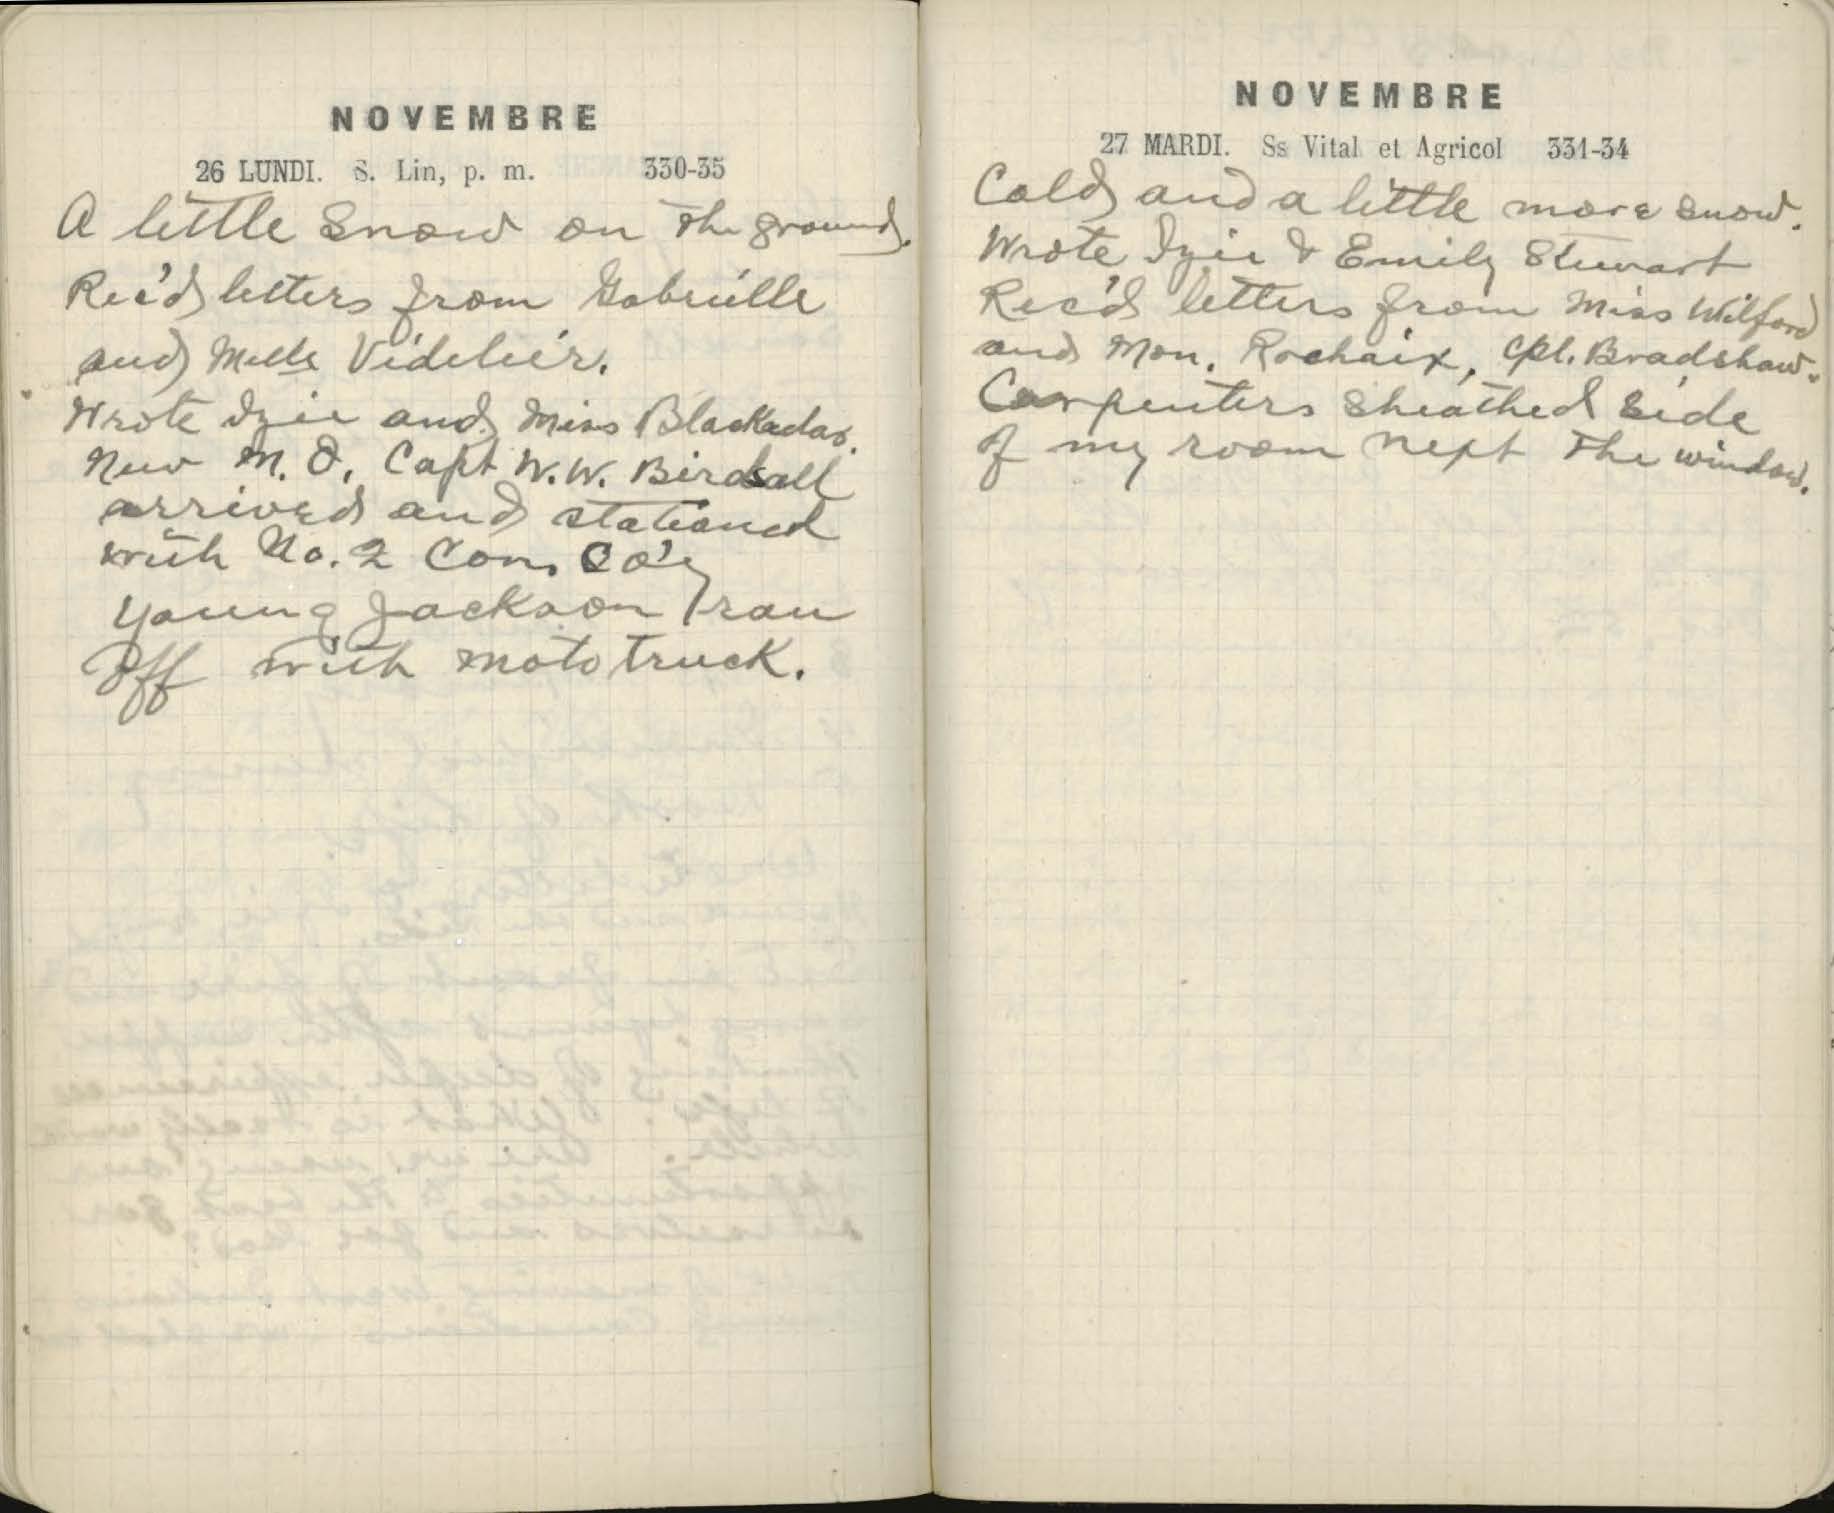 NOVEMBRE
26 LUNDI. S. Lin, p. m. 330-35
A little snow on the ground.
Rec'd letters from Gabrielle
and Mlle Videlier.
Wrote Izie and Miss Blackadar.
New M. O. Capt W. W. Birdsall
arrived and stationed
with No. 2 Con. Co'y
Young Jackson ran
off with moto truck.
NOVEMBRE
27 MARDI. Ss Vital et Agricol 331-34
Cold and a little more snow.
Wrote Izie & Emily Stewart
Rec'd letters from Miss Wilford
and Mon. Rochaix, Cpl. Bradshaw.
Carpenters sheathed side
of my room next the window.